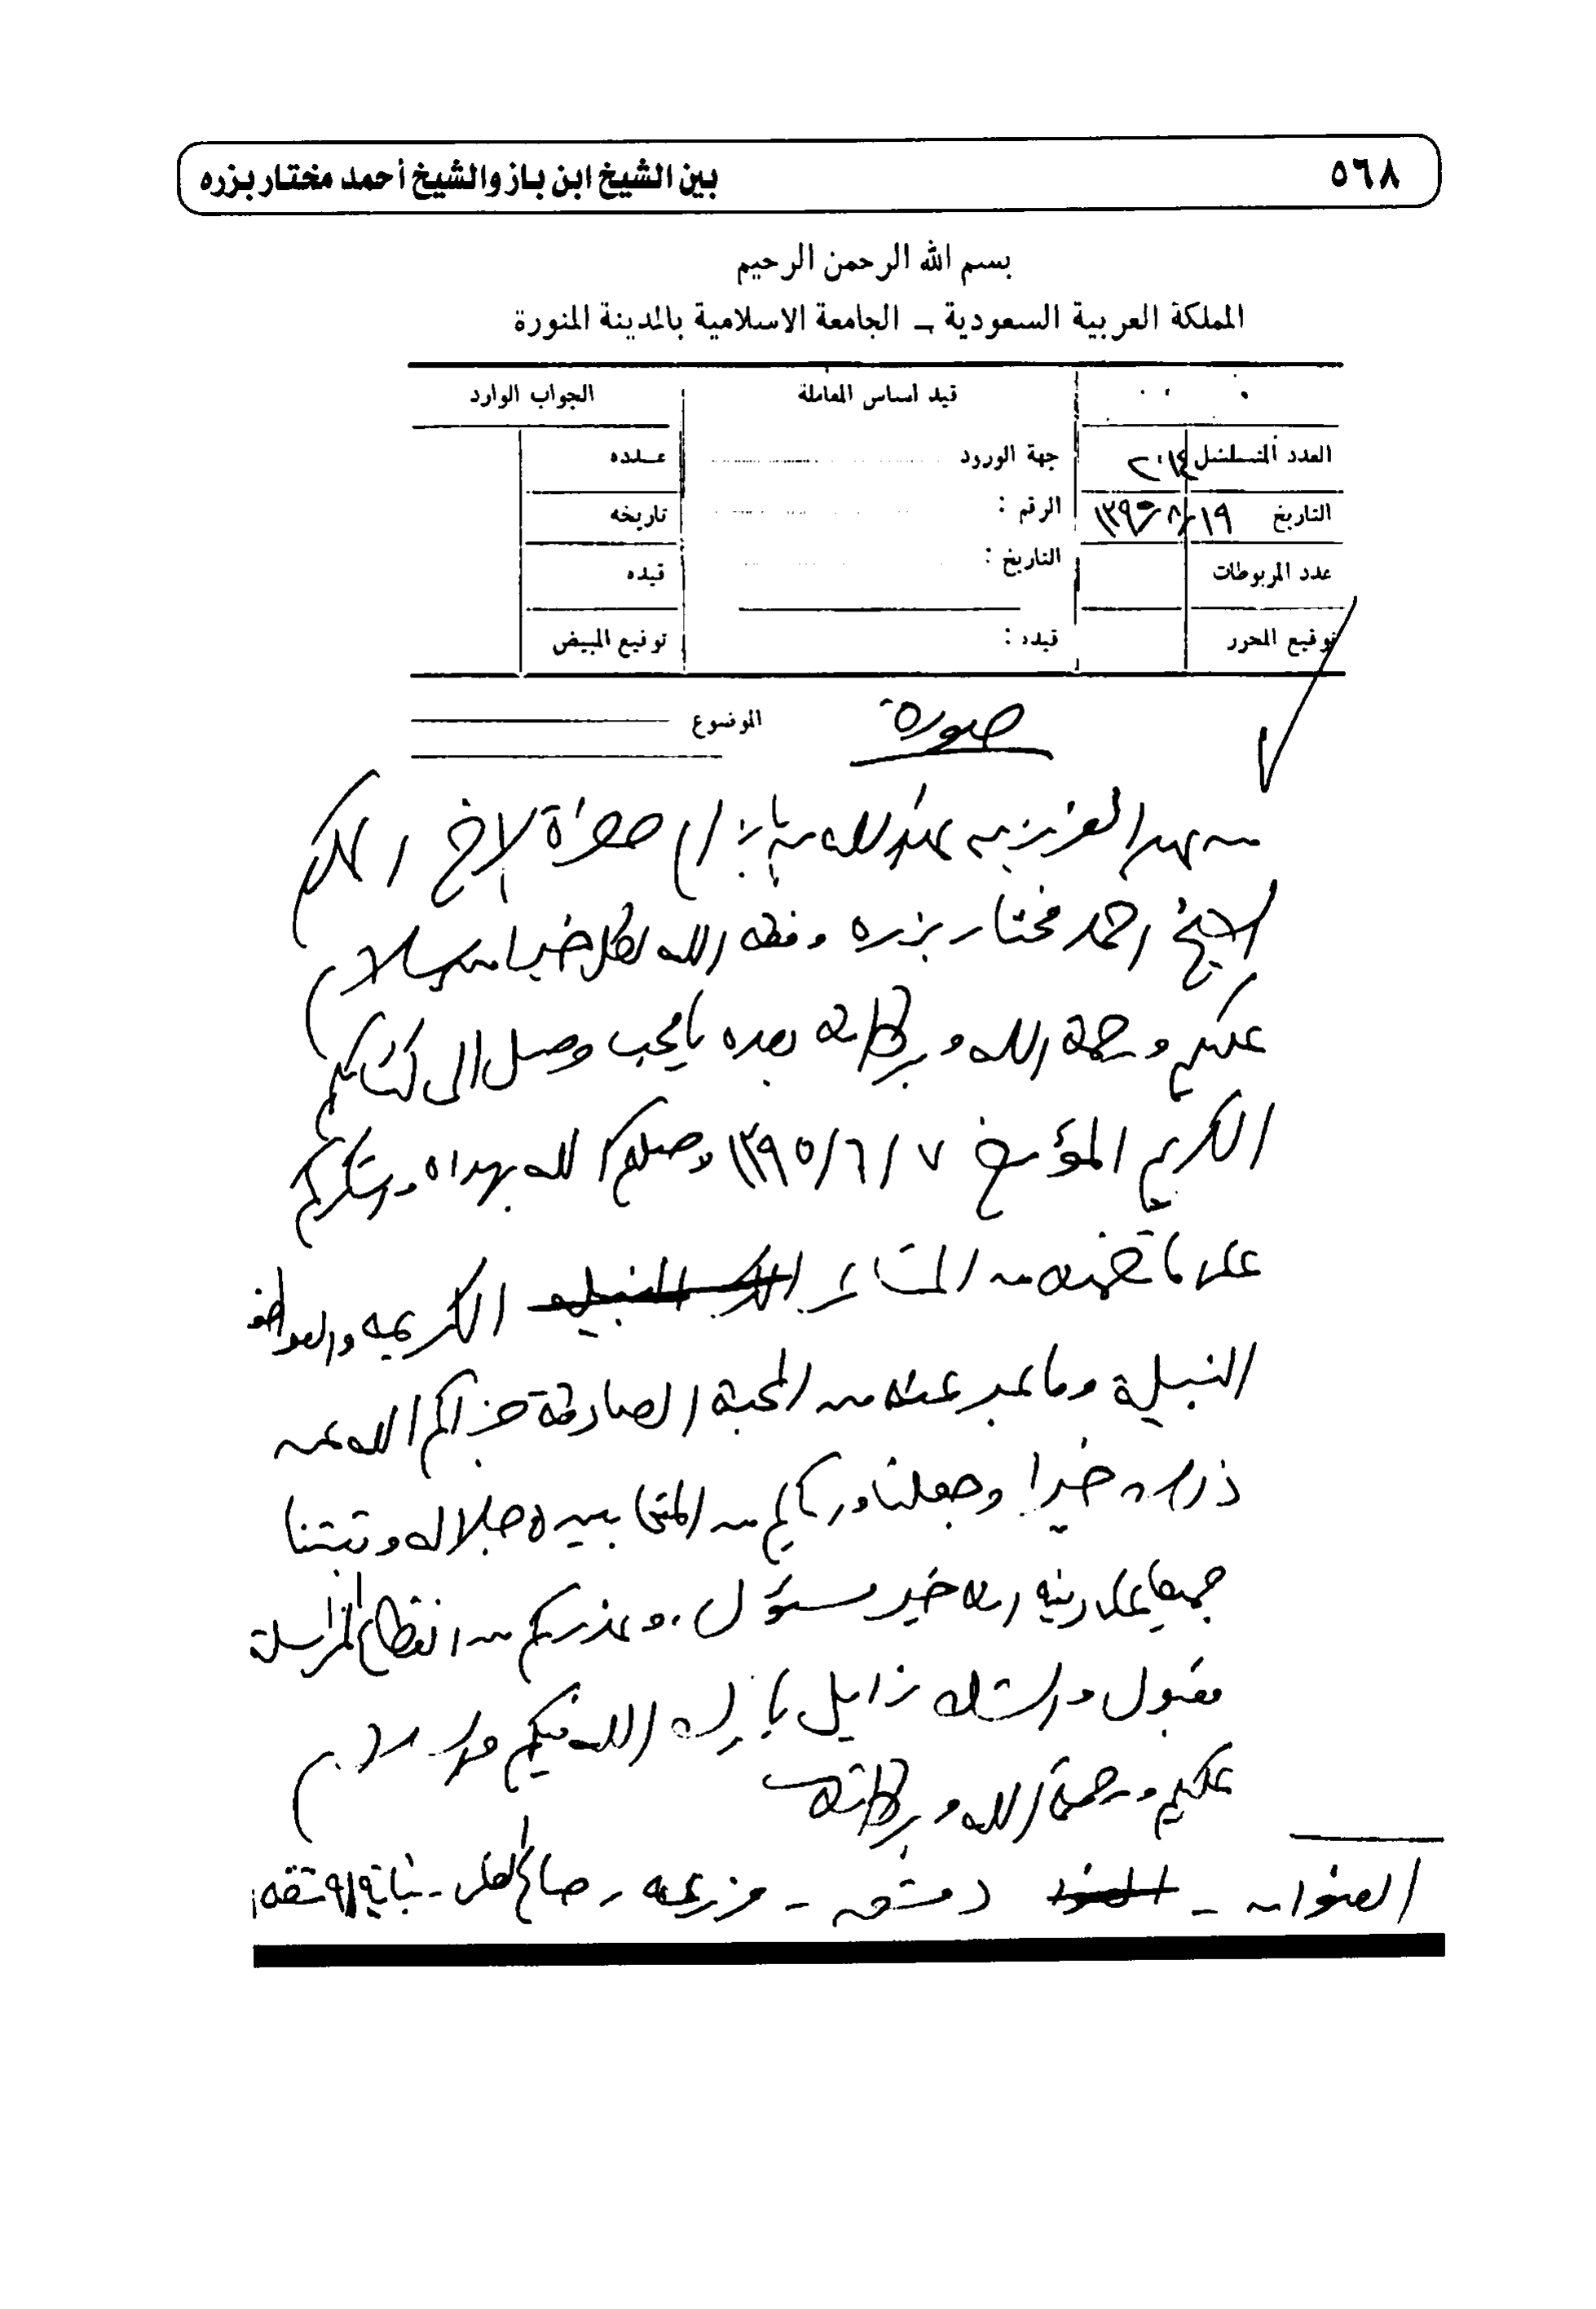 ٥٦٨
بين الشيخ ابن باز والشيخ أحمد مختار بزره
بسم الله الرحمن الرحيم
المملكة العربية السعودية - الجامعة الاسلامية بالمدينة المنورة
قيد اساس المعاملة
الجواب الوارد
العدد المتسلسل ٢٠١٤
جهة الورود
عدده
التاريخ ١٩ / ٨ / ١٣٩٥
الرقم :
تاريخه
التاريخ :
عدد المربوطات
قيده
توقيع المحرر
قيده :
توقيع المبيض
صورة
الموضوع
من عبد العزيز بن عبد الله بن باز الى حضرة الاخ المكرم
الشيخ احمد مختار بزره وفقه الله لكل خير امين سلام
عليكم ورحمة الله وبركاته بعده يا محب وصل الى كتابكم
الكريم المؤرخ ٧ / ٦ / ١٣٩٥ وصلكم الله بهداه واشكركم
على ما تضمنه من المشاعر الكريمه والعواطف
النبيلة وما عبر عنه من المحبة الصادقة جزاكم الله عن
ذلك خيرا وجعلنا واياكم من المتحابين بجلاله وثبتنا
جميعا على دينه انه خير مسؤل، وعذركم من انقطاع المراسلة
مقبول والشك زايل بارك الله فيكم والسلام
عليكم ورحمة الله وبركاته
العنوان - دمشق - مزرعه - صالح العلى - بناية ٩١ شقه ١